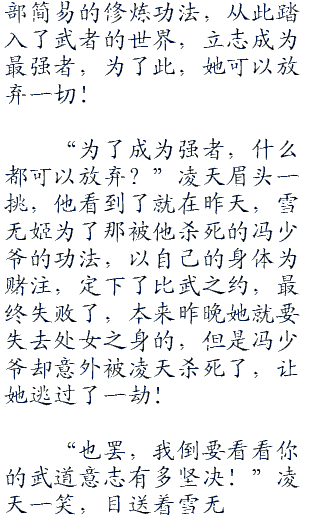 部简易的修炼功法，从此踏
入了武者的世界，立志成为
最强者，为了此，她可以放
弃一切！
“为了成为强者，什么
都可以放弃？”凌天眉头一
挑，他看到了就在昨天，雪
无娅为了那被他杀死的冯少
爷的功法，以自己的身体为
赌注，定下了比武之约，最
终失败了，本来昨晚她就要
失去处女之身的，但是冯少
爷却意外被凌天杀死了，让
她逃过了一劫！
“也罢，我倒要看看你
的武道意志有多坚决！”凌
天一笑，目送着雪无